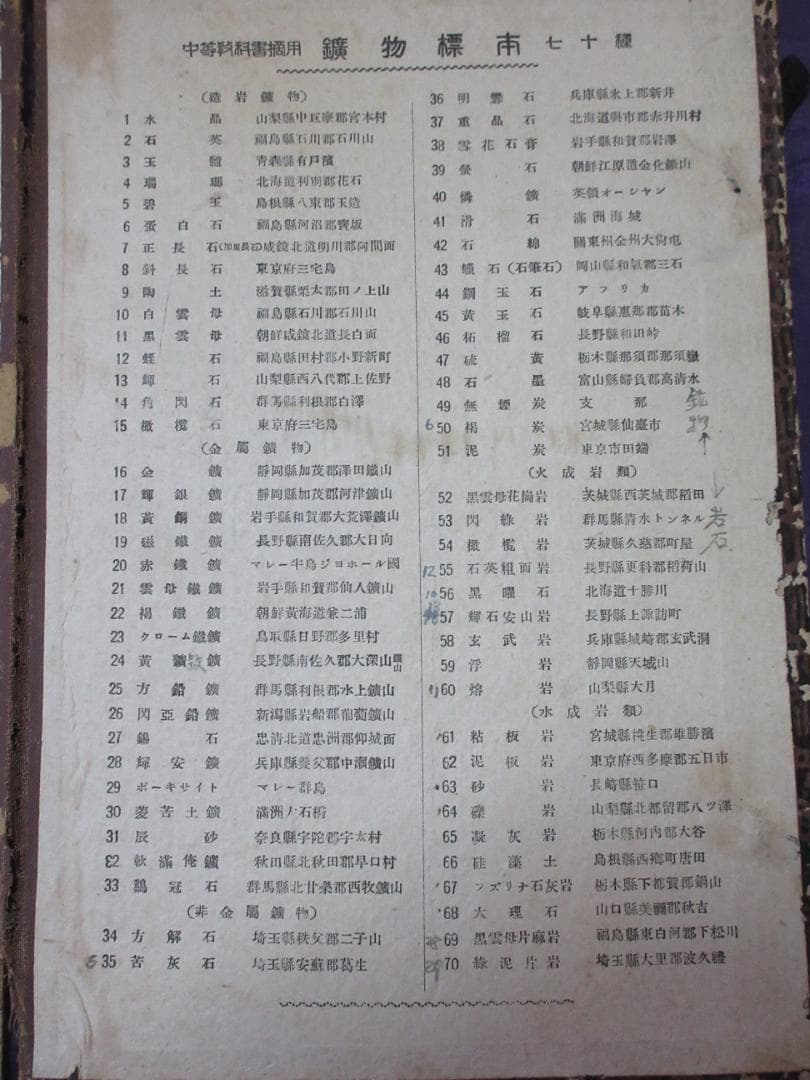 中等敎科書摘用 鑛物標本 七十種
(造岩鑛物)
1 水晶 山梨縣中巨摩郡宮本村
2 石英 福島縣石川郡石川山
3 玉髓 靑森縣有戶濱
4 瑪瑙 北海道利別郡花石
5 碧玉 島根縣八束郡玉造
6 蛋白石 福島縣河沼郡寶坂
7 正長石(加里長石) 咸鏡北道明川郡阿間面
8 斜長石 東京府三宅島
9 陶土 滋賀縣栗太郡田ノ上山
10 白雲母 福島縣石川郡石川山
11 黑雲母 朝鮮咸鏡北道長白面
12 蛭石 福島縣田村郡小野新町
13 輝石 山梨縣西八代郡上佐野
14 角閃石 群馬縣利根郡白澤
15 橄欖石 東京府三宅島
(金屬鑛物)
16 金鑛 靜岡縣加茂郡澤田鑛山
17 輝銀鑛 靜岡縣加茂郡河津鑛山
18 黃銅鑛 岩手縣和賀郡大荒澤鑛山
19 磁鐵鑛 長野縣南佐久郡大日向
20 赤鐵鑛 マレー半島ジヨホール國
21 雲母鐵鑛 岩手縣和賀郡仙人鑛山
22 褐鐵鑛 朝鮮黃海道兼二浦
23 クローム鐵鑛 鳥取縣日野郡多里村
24 黃鐵鑛 長野縣南佐久郡大深山鑛山
25 方鉛鑛 群馬縣利根郡水上鑛山
26 閃亞鉛鑛 新潟縣岩船郡葡萄鑛山
27 錫石 忠清北道忠洲郡仰城面
28 輝安鑛 兵庫縣養父郡中瀨鑛山
29 ボーキサイト マレー群島
30 菱苦土鑛 滿洲大石橋
31 辰砂 奈良縣宇陀郡宇太村
32 軟滿俺鑛 秋田縣北秋田郡早口村
33 鷄冠石 群馬縣北甘樂郡西牧鑛山
(非金屬鑛物)
34 方解石 埼玉縣秩父郡二子山
6 35 苦灰石 埼玉縣安蘇郡葛生
36 明礬石 兵庫縣氷上郡新井
37 重晶石 北海道與市郡赤井川村
38 雪花石膏 岩手縣和賀郡岩澤
39 螢石 朝鮮江原道金化鑛山
40 燐鑛 英領オーシヤン
41 滑石 滿洲海城
42 石綿 關東州金州大街屯
43 蠟石(石筆石) 岡山縣和氣郡三石
44 鋼玉石 アフリカ
45 黃玉石 岐阜縣惠那郡苗木
46 柘榴石 長野縣和田峠
47 硫黃 栃木縣那須郡那須嶽
48 石墨 富山縣婦負郡高清水
49 無煙炭 支那
6 50 褐炭 宮城縣仙臺市
51 泥炭 東京市田端
鉱物↑
(火成岩類)
52 黑雲母花崗岩 茨城縣西茨城郡稻田
53 閃綠岩 群馬縣清水トンネル
54 橄欖岩 茨城縣久慈郡町屋
↓岩石
12 55 石英粗面岩 長野縣更科郡稻荷山
10 56 黑曜石 北海道十勝川
57 輝石安山岩 長野縣上諏訪町
58 玄武岩 兵庫縣城崎郡玄武洞
59 浮岩 靜岡縣天城山
60 熔岩 山梨縣大月
(水成岩類)
61 粘板岩 宮城縣桃生郡雄勝濱
62 泥板岩 東京府西多摩郡五日市
63 砂岩 長崎縣笹口
64 礫岩 山梨縣北都留郡八ツ澤
65 凝灰岩 栃木縣河內郡大谷
66 硅藻土 島根縣西鄉町唐田
67 フズリナ石灰岩 栃木縣下都賀郡鍋山
68 大理石 山口縣美禰郡秋吉
69 黑雲母片麻岩 福島縣東白河郡下松川
70 綠泥片岩 埼玉縣大里郡波久禮